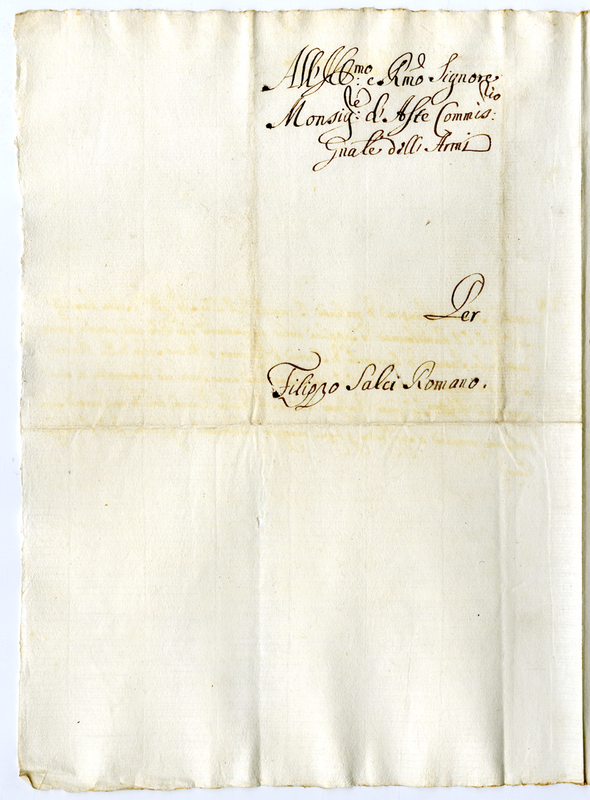 All' Ill:mo e R.mo Signore
Monsig:re d' Aste Commis:rio
Gnale dell' Armi
Per
Filippo Salci Romano.